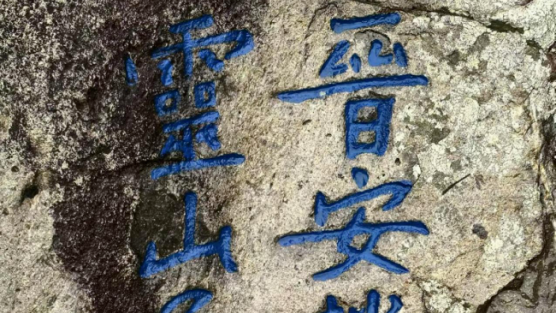 晉安
靈山